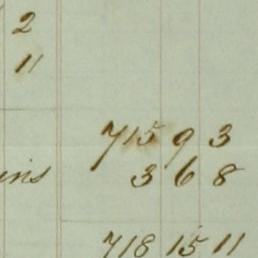 2
11
715 9 3
ins 3 6 8
718 15 11